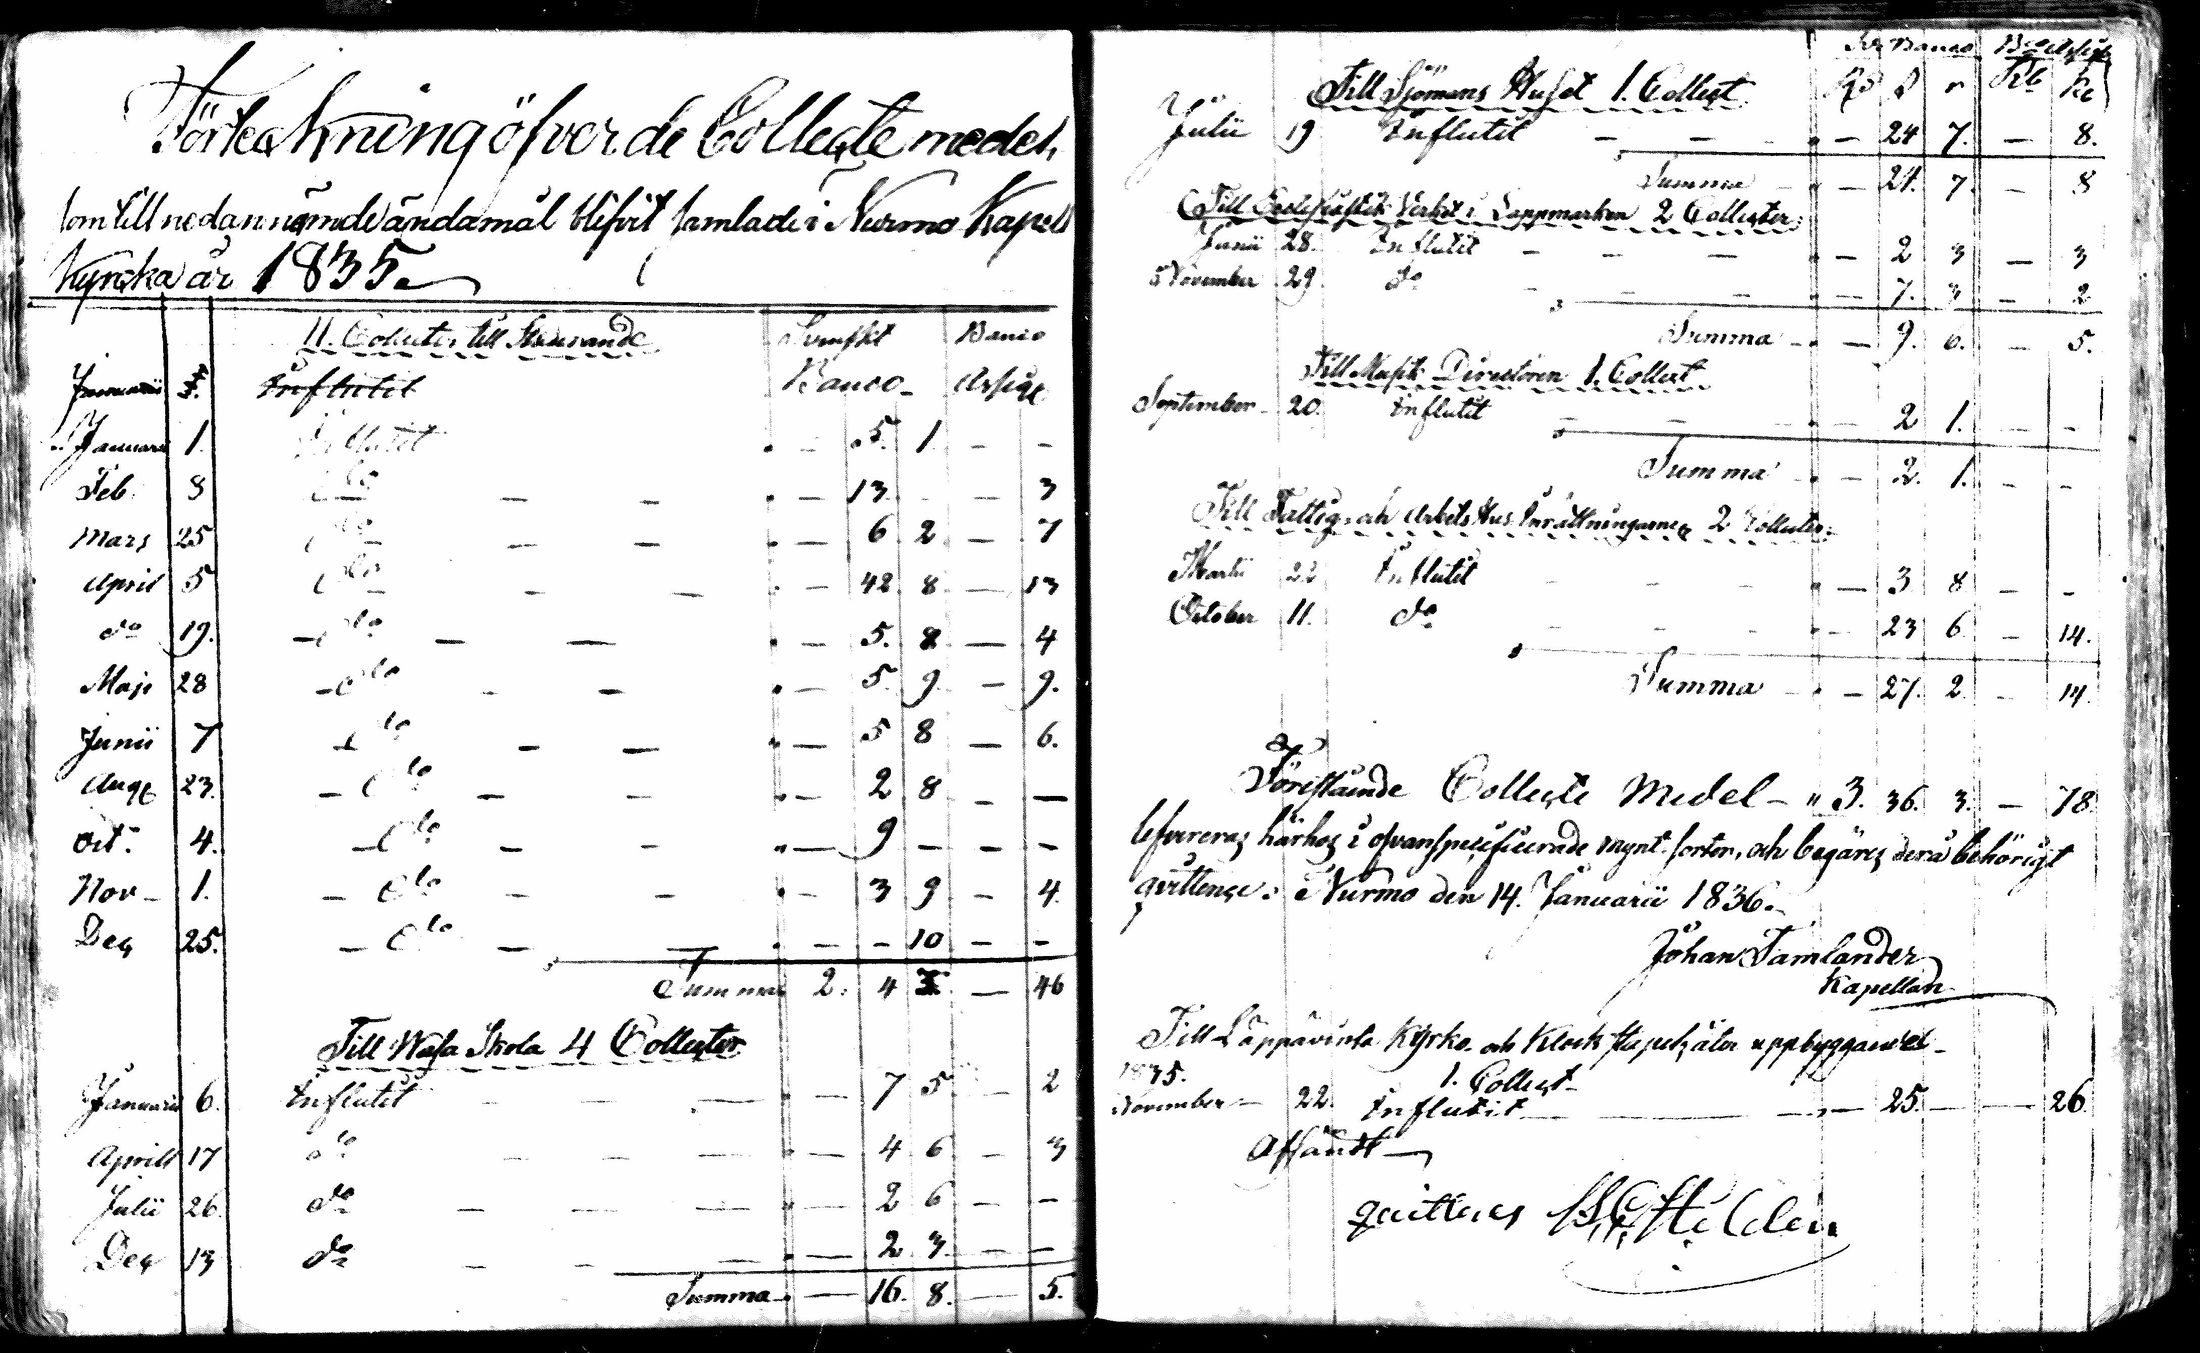 Förteckning öfver de Collecte medel,
som till nedannämde ändamål blifvit samlade i Nurmo Kapell
Kyrcka år 1835.
11. Collecter till Studerande Svenskt Banco
Januarii Influtit Banco Assign
Januarii 1. Influtit " — 5. 1. — —
Feb. 8 do — — " — 13. — 3
Mars 25 do — — " — 6 2 — 7
April 5 do — — " — 42. 8 — 13
do 19. do — — " — 5. 8 — 4
Maji 28 do — — " — 5. 9. — 9.
Junii 7 do — — " — 5 8 — 6.
Aug 23. do — — " — 2 8 — —
Oct. 4. do — — " — 9 — — —
Nov 1. do — — " — 3 9 — 4.
Dec 25. do — — " — — 10 — —
Summa 2. 4 — 46
Till Wasa Skola 4 Collecter
Januarii 6. Influtit — — — " — 7 5 — 2
Aprill 17 do — — — " — 4 6 — 3
Julii 26 do — — — " — 2 6 — —
Dec 13 do — — — " — 2 3 — —
Summa " — 16. 8. — 5.
Banco
Till Sjömans Huset 1. Collect
Julii 19 Influtit — — — " — 24 7. — 8.
Summa " — 24. 7. — 8
Till Ecclesiastik Verket i Lappmarken 2 Collecter:
Junii 28. Influtit — — — " — 2 3 — 3
November 29. do — — — " — 7. 3 — 2
Summa " — 9. 6. — 5.
Till Musik Directören 1. Collect
September 20. Influtit — — — " — 2 1. — —
Summa " — 2. 1. — —
Till Fattig och Arbets Hus Inrättningarne 2 Collecter:
Martii 22 Influtit — — — " — 3 8 — —
October 11. do — — — " — 23 6 — 14.
Summa " — 27. 2 — 14.
Förestående Collecte Medel — " 3. 36. 3. — 78.
lefvereras härhos i ofvanspecificerade mynt sorter, och begäres derå behörigt
qvittence. Nurmo den 14. Januarii 1836.
Johan Tamlander
Kapellan
Till Lappävirta Kyrko och Klock stapels åter uppbyggande
1835. 1. Collect
November 22. Influtit — " — 25. — — 26.
Afsändt
quitteras